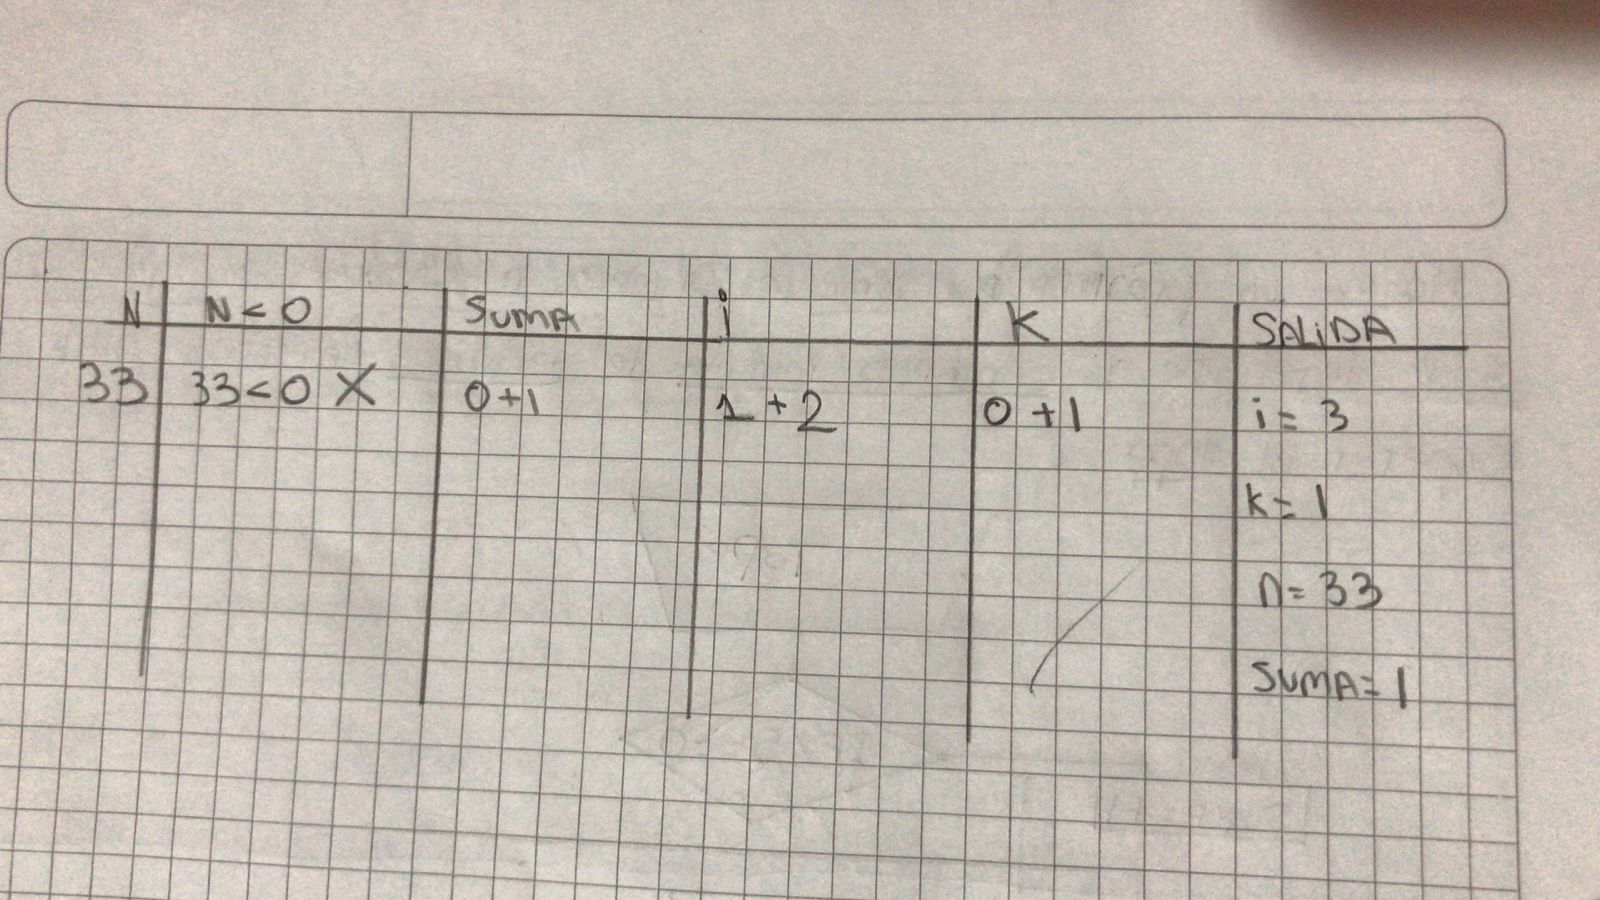 N N<0 SUMA i K SALiDA
33 33<0 X 0+1 1+2 0+1 i=3
k=1
n=33
SUMA=1